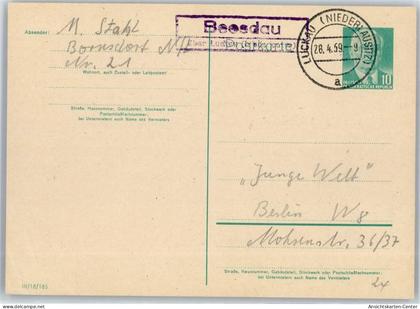 Absender: M. Stahl
Bornsdorf N/L
Nr. 21
Wohnort, auch Zustell- oder Leitpostamt
Straße, Hausnummer, Gebäudeteil, Stockwerk oder
Postschließfachnummer;
bei Untermietern auch Name des Vermieters
Beesdau
über Luckau
Postkarte
LUCKAU (NIEDERLAUSITZ)
28.4.59-9
a
10
"Junge Welt"
Berlin W8
Mohrenstr. 36/37
Straße, Hausnummer, Gebäudeteil, Stockwerk oder Postschließfachnummer;
bei Untermietern auch Name des Vermieters
III/18/185
Ansichtskarten-Center